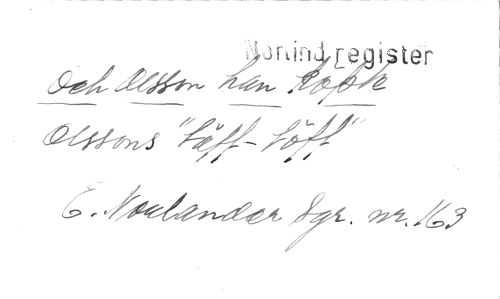 Norlind register
Och Olsson han köpte
Olssons "Töff-töff"
E. Norlander Sgr. nr. 163